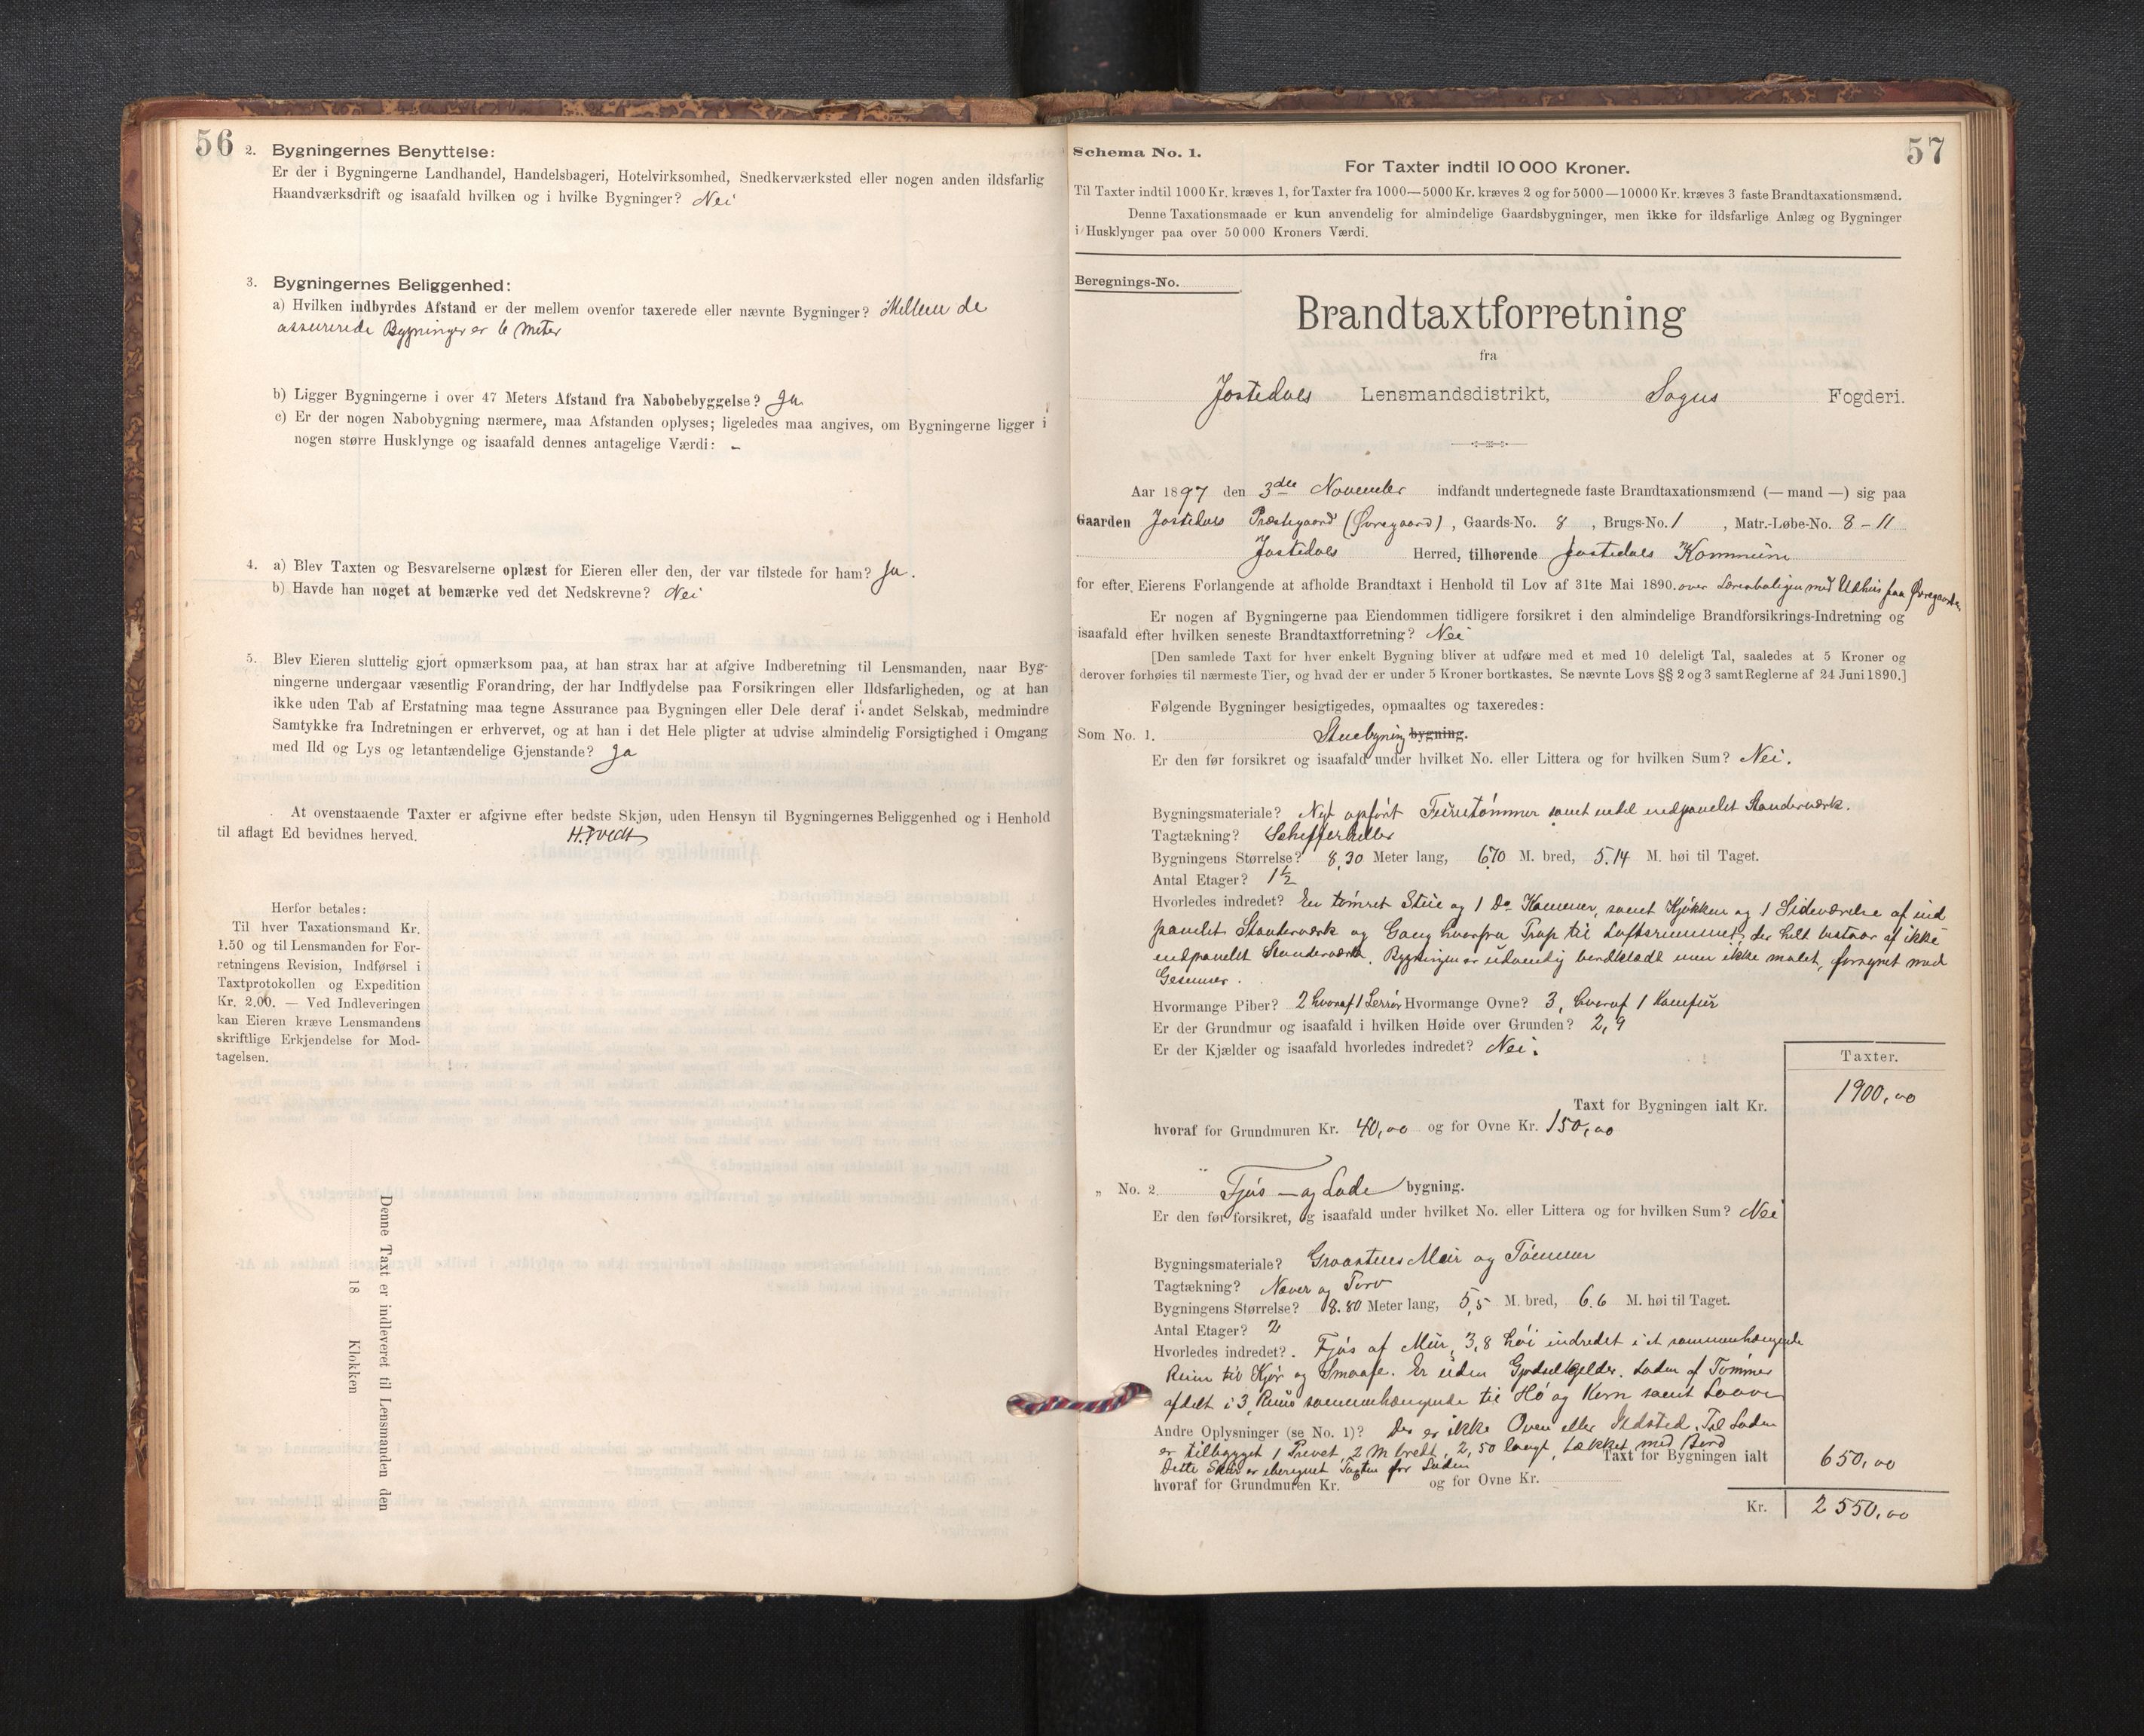 56
2. Bygningernes Benyttelse:
Er der i Bygningerne Landhandel, Handelsbageri, Hotelvirksomhed, Snedkerværksted eller nogen anden ildsfarlig
Haandværksdrift og isaafald hvilken og i hvilke Bygninger? Nei
3. Bygningernes Beliggenhed:
a) Hvilken indbyrdes Afstand er der mellem ovenfor taxerede eller nævnte Bygninger? Mellem de
assurerede Bygninger er 6 Meter
b) Ligger Bygningerne i over 47 Meters Afstand fra Nabobebyggelse? Ja
c) Er der nogen Nabobygning nærmere, maa Afstanden oplyses; ligeledes maa angives, om Bygningerne ligger i
nogen større Husklynge og isaafald dennes antagelige Værdi: -
4. a) Blev Taxten og Besvarelserne oplæst for Eieren eller den, der var tilstede for ham? Ja.
b) Havde han noget at bemærke ved det Nedskrevne? Nei
5. Blev Eieren sluttelig gjort opmærksom paa, at han strax har at afgive Indberetning til Lensmanden, naar Byg-
ningerne undergaar væsentlig Forandring, der har Indflydelse paa Forsikringen eller Ildsfarligheden, og at han
ikke uden Tab af Erstatning maa tegne Assurance paa Bygningen eller Dele deraf i andet Selskab, medmindre
Samtykke fra Indretningen er erhvervet, og at han i det Hele pligter at udvise almindelig Forsigtighed i Omgang
med Ild og Lys og letantændelige Gjenstande? Ja
At ovenstaaende Taxter er afgivne efter bedste Skjøn, uden Hensyn til Bygningernes Beliggenhed og i Henhold
til aflagt Ed bevidnes herved.
Herfor betales:
Til hver Taxationsmand Kr.
1.50 og til Lensmanden for For-
retningens Revision, Indførsel i
Taxtprotokollen og Expedition
Kr. 2.00. — Ved Indleveringen
kan Eieren kræve Lensmandens
skriftlige Erkjendelse for Mod-
tagelsen.
Denne Taxt er indleveret til Lensmanden den
18 Klokken
57
Schema No. 1.
For Taxter indtil 10 000 Kroner.
Til Taxter indtil 1000 Kr. kræves 1, for Taxter fra 1000—5000 Kr. kræves 2 og for 5000—10000 Kr. kræves 3 faste Brandtaxationsmænd.
Denne Taxationsmaade er kun anvendelig for almindelige Gaardsbygninger, men ikke for ildsfarlige Anlæg og Bygninger
i Husklynger paa over 50 000 Kroners Værdi.
Beregnings-No.
Brandtaxtforretning
fra
Jostedals Lensmandsdistrikt, Sogns Fogderi.
Aar 1897 den 3die November indfandt undertegnede faste Brandtaxationsmænd (— mand —) sig paa
Gaarden Jostedals Præstegaard (Øvregaard), Gaards-No. 8, Brugs-No. 1, Matr.-Løbe-No. 8 - 11
Jostedals Herred, tilhørende Jostedals Kommune
for efter Eierens Forlangende at afholde Brandtaxt i Henhold til Lov af 31te Mai 1890. over Lærerboligen med Udhus paa Øvregaarden
Er nogen af Bygningerne paa Eiendommen tidligere forsikret i den almindelige Brandforsikrings-Indretning og
isaafald efter hvilken seneste Brandtaxtforretning? Nei
[Den samlede Taxt for hver enkelt Bygning bliver at udføre med et med 10 deleligt Tal, saaledes at 5 Kroner og
derover forhøies til nærmeste Tier, og hvad der er under 5 Kroner bortkastes. Se nævnte Lovs §§ 2 og 3 samt Reglerne af 24 Juni 1890.]
Følgende Bygninger besigtigedes, opmaaltes og taxeredes:
Som No. 1. Stuebygning bygning.
Er den før forsikret og isaafald under hvilket No. eller Littera og for hvilken Sum? Nei.
Bygningsmateriale? Nyt opført Furutømmer samt endel indpanelet Standerværk.
Tagtækning? Schifferheller
Bygningens Størrelse? 8,30 Meter lang, 6,70 M. bred, 5.14 M. høi til Taget.
Antal Etager? 1½
Hvorledes indredet? En tømret Stue og 1 Do Kammer, samt Kjøkken og 1 Sideværelse af ind
panelet Standerværk og Gang hvorfra Trap til Loftsrummet, der helt bestaar af ikke
indpanelet Standerværk. Bygningen er udvendig bordklædt men ikke malet, forsynet med
Gesimser.
Hvormange Piber? 2 hvoraf 1 Hvormange Ovne? 3, hvoraf 1 Komfur
Er der Grundmur og isaafald i hvilken Høide over Grunden? 2,9
Er der Kjælder og isaafald hvorledes indredet? Nei.
Taxter.
Taxt for Bygningen ialt Kr. 1900,00
hvoraf for Grundmuren Kr. 40,00 og for Ovne Kr. 150,00
„ No. 2. Fjøs - og Lade bygning.
Er den før forsikret, og isaafald under hvilket No. eller Littera og for hvilken Sum? Nei
Bygningsmateriale? Graastens Mur og Tømmer
Tagtækning? Næver og Torv
Bygningens Størrelse? 8.80 Meter lang, 5,5 M. bred, 6.6 M. høi til Taget.
Antal Etager? 2
Hvorledes indredet? Fjøs af Mur, 3,8 høi indredet i et sammenhængende
Rum til Kjør og Smaafe. Er uden Gjødselkjelder. Laden af Tømmer
afdelt i 3 Rum sammenhængende til Hø og Korn samt Laave
Andre Oplysninger (se No. 1)? Der er ikke Oven eller Ildsted. Til Laden
er tilbygget 1 Privet, 2 m bredt, 2,50 langt, tækket med Bord
Dette Skur er iberegnet Taxten for Laden
Taxt for Bygningen ialt 650,00
hvoraf for Grundmuren Kr. og for Ovne Kr.
Kr. 2550,00